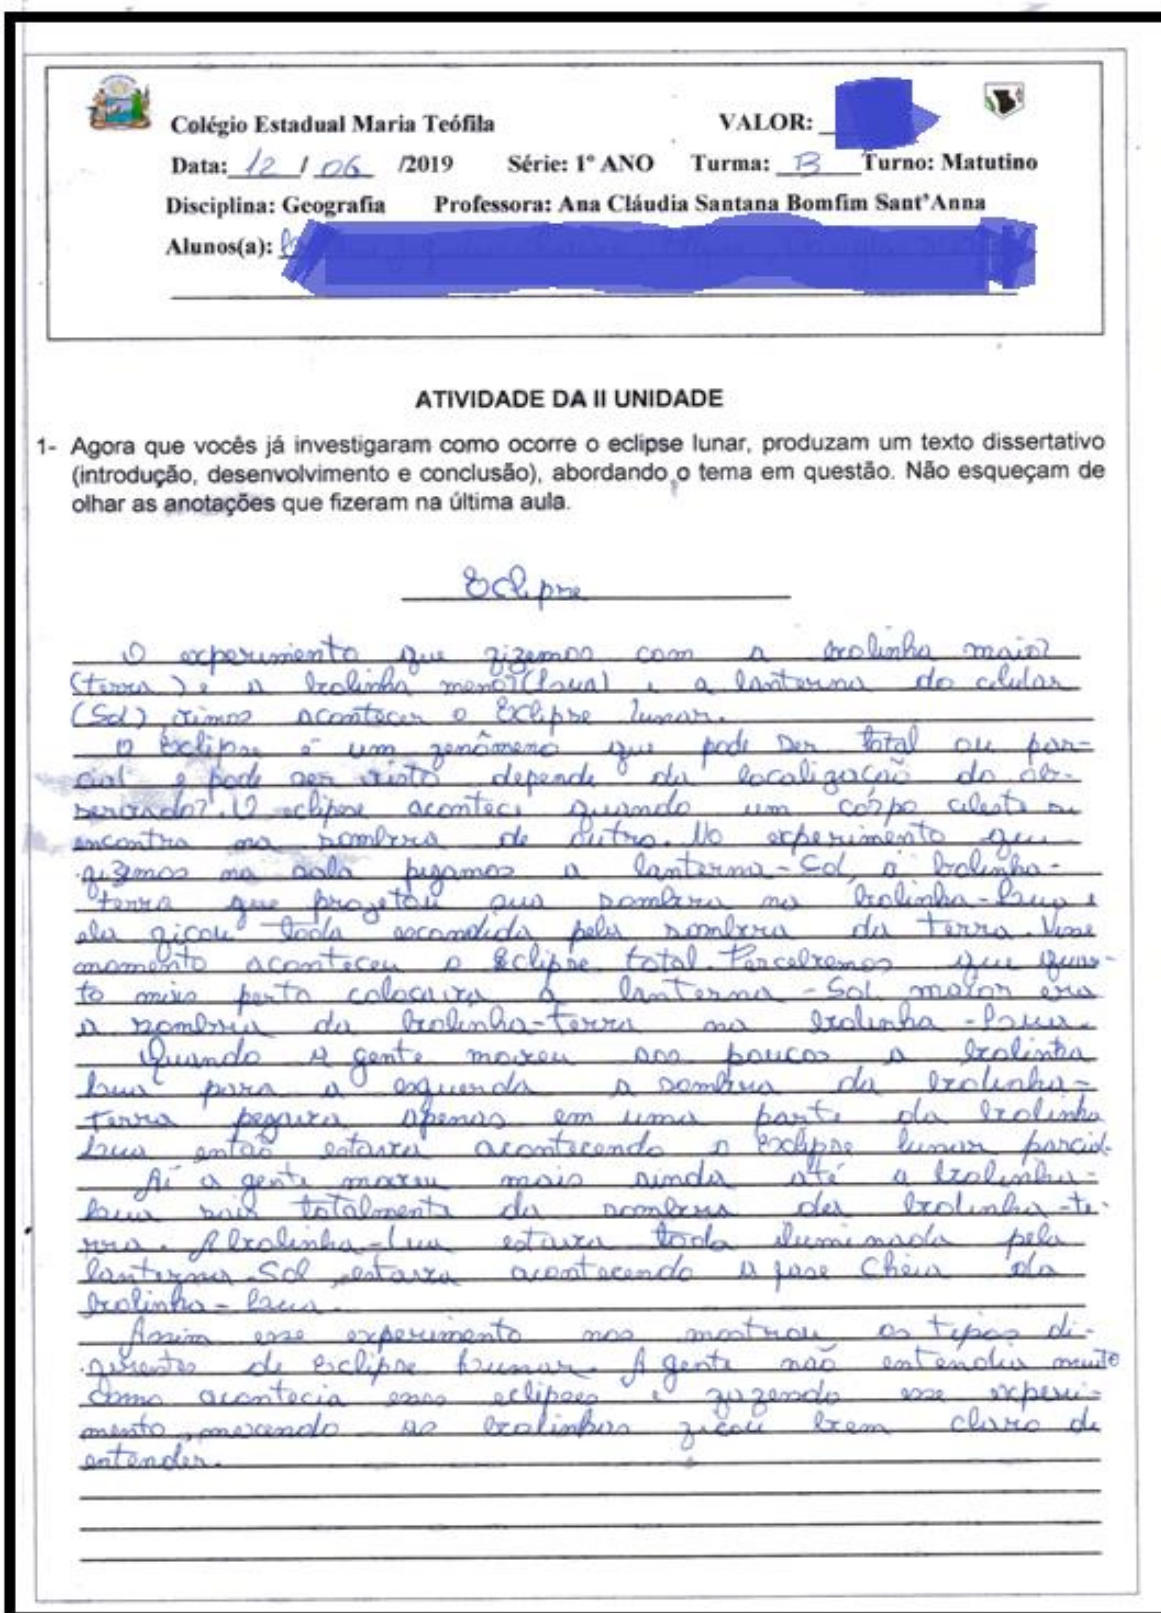 Colégio Estadual Maria Teófila VALOR:
Data: 12 / 06 /2019 Série: 1º ANO Turma: B Turno: Matutino
Disciplina: Geografia Professora: Ana Cláudia Santana Bomfim Sant'Anna
Alunos(a):
ATIVIDADE DA II UNIDADE
1- Agora que vocês já investigaram como ocorre o eclipse lunar, produzam um texto dissertativo
(introdução, desenvolvimento e conclusão), abordando o tema em questão. Não esqueçam de
olhar as anotações que fizeram na última aula.
Eclipse
O experimento que fizemos com a bolinha maior
(terra) e a bolinha menor (Lua) e a lanterna do celular
(Sol) vimos acontecer o Eclipse lunar.
O Eclipse é um fenômeno que pode ser total ou par-
cial e pode ser visto depende da localização do ob-
servador. O eclipse acontece quando um corpo celeste se
encontra na sombra de outro. No experimento que
fizemos na aula pegamos a lanterna-Sol, a bolinha-
terra que projetou sua sombra na bolinha-Lua e
ela ficou toda escondida pela sombra da Terra. Nesse
momento aconteceu o Eclipse total. Percebemos que quan-
to mais perto colocava a lanterna-Sol maior era
a sombra da bolinha-terra na bolinha-Lua.
Quando a gente moveu aos poucos a bolinha
Lua para a esquerda a sombra da bolinha-
Terra pegava apenas em uma parte da bolinha
Lua então estava acontecendo o Eclipse lunar parcial.
Aí a gente moveu mais ainda até a bolinha-
Lua sair totalmente da sombra da bolinha-te-
rra. A bolinha-Lua estava toda iluminada pela
lanterna-Sol, estava acontecendo a fase Cheia da
bolinha-Lua.
Assim esse experimento nos mostrou os tipos di-
ferentes de Eclipse Lunar. A gente não entendia muito
como acontecia esses eclipses e fazendo esse experi-
mento, mexendo as bolinhas ficou bem claro de
entender.